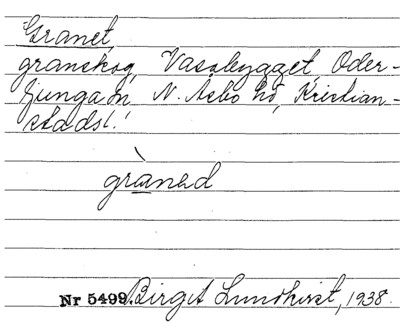 Granet,
granskog, Vassbygget, Oder-
ljunga sn N. Åsbo hd, Kristian-
stads l.
grànəd
Nr 5499. Birgit Lundkvist, 1938.